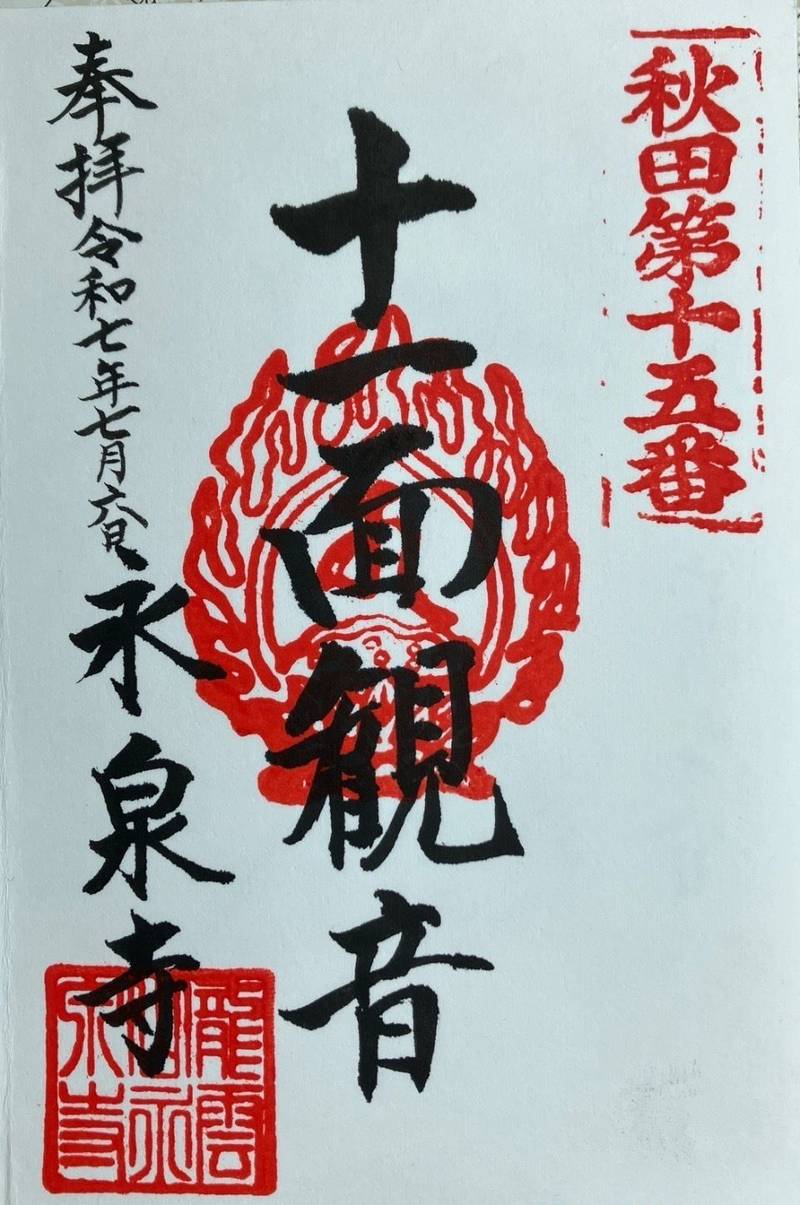 秋田第十五番
十一面観音
奉拝令和七年七月六日
永泉寺
龍雲山永泉寺